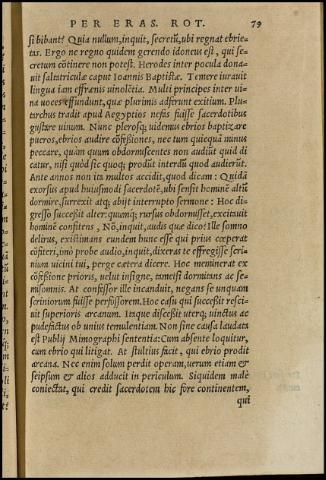 PER ERAS. ROT. 79
si bibant? Quia nullum, inquit, secretũ, ubi regnat ebrie-
tas. Ergo ne regno quidem gerendo idoneus est, qui se-
cretum cõtinere non potest. Herodes inter pocula dona-
uit saltatriculæ caput Ioannis Baptistæ. Temere iurauit
linguam iam effrænis uinolẽtia. Multi principes inter ui-
na uoces effundunt, quæ plurimis adferunt exitium. Plu-
tarchus tradit apud Aegyptios nefas fuisse sacerdotibus
gustare uinum. Nunc plerosq; uidemus ebrios baptizare
pueros, ebrios audire cõfessiones, nec tam quicquã minus
peccare, quàm quum obdormiscentes non audiũt quid di
catur, nisi quòd sic quoq; produt interdũ quod audierũt.
Ante annos non ita multos accidit, quod dicam: Quidã
exorsus apud huiusmodi sacerdotẽ, ubi sensit hominẽ altũ
dormire, surrexit atq; abijt interrupto sermone: Hoc di-
gresso successit alter: quemq; rursus obdormisset, excitauit
hominẽ confitens, Nõ, inquit, audis quæ dico? Ille somno
delirus, existimans eundem hunc esse qui prius cœperat
cõfiteri, imò probe audio, inquit, dixeras te effregisse scri-
nium uicini tui, perge cætera dicere. Hoc meminerat ex
cõfessione prioris, uelut insigne, tametsi dormitans ac se-
misomnis. At confessor ille incanduit, negans se unquam
scriniorum fuisse perfossorem. Hoc casu qui successit resci-
uit superioris arcanum. Itaque discessit uterq; uinctus ac
pudefactus ob unius temulentiam. Non sine causa laudata
est Publij Mimographi sententia: Cum absente loquitur,
cum ebrio qui litigat. At stultius facit, qui ebrio prodit
arcana. Nec enim solum perdit operam, uerum etiam &
seipsum & alios adducit in periculum. Siquidem malè
coniectat, qui credit sacerdotem hic fore continentem,
qui